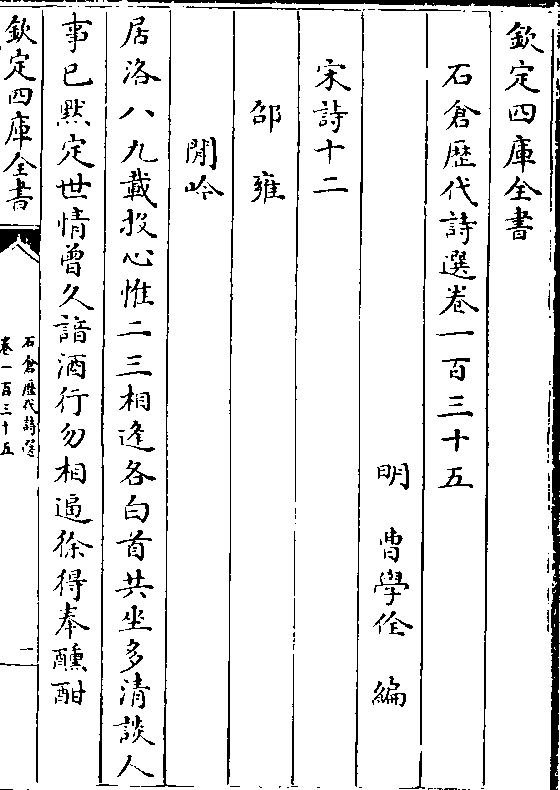 欽定四庫全書
石倉歷代詩選卷一百三十五
明 曹學佺 編
宋詩十二
邵雍
閒吟
居洛八九載投心惟二三相逢各白首共坐多清談人
事已黙定世情曾久諳酒行勿相逼徐得奉醺酣
欽定四庫全書
石倉歷代詩選
卷一百三十五